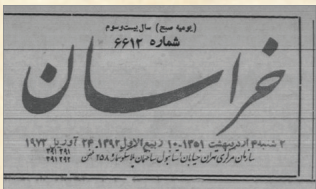 (یومیه صبح) سال بیست‌وسوم
شماره ۶۶۱۲
خراسان
۲ شنبه ۴ اردیبهشت ۱۳۵۱ - ۱۰ ربیع‌الاول ۱۳۹۲، ۲۴ آوریل ۱۹۷۲
سازمان مرکزی تهران خیابان استانبول ساختمان پلاسکو شماره ۲۵۸ تلفن